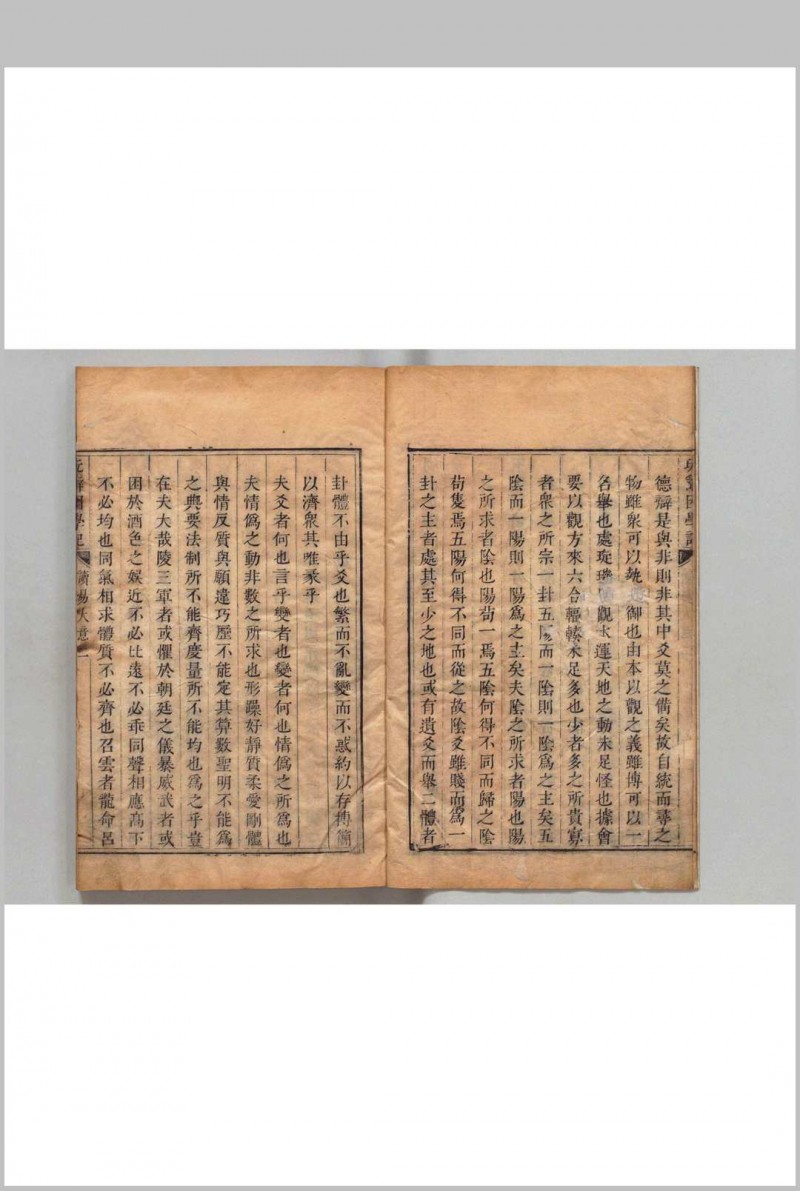 德辯是與非則非其中爻莫之備矣故自統而尋之
物雖衆可以執御也由本以觀之義雖博可以一
名舉也處琁璣觀大運天地之動未足怪也據會
要以觀方來六合輻輳未足多也少者多之所貴寡
者衆之所宗一卦五陽而一陰則一陰爲之主矣五
陰而一陽則一陽爲之主矣夫陰之所求者陽也陽
之所求者陰也陽苟一焉五陰何得不同而歸之陰
茍隻焉五陽何得不同而從之故陰爻雖賤而爲一
卦之主者處其至少之地也或有遺爻而舉二體者
卦體不由乎爻也繁而不亂變而不惑約以存博簡
以濟衆其唯彖乎
夫爻者何也言乎變者也變者何也情僞之所爲也
夫情僞之動非數之所求也形躁好靜質柔愛剛體
與情反質與願違巧歷不能定其算數聖明不能爲
之典要法制所不能齊度量所不能均也爲之乎豈
在夫大哉陵三軍者或懼於朝廷之儀暴威武者或
困於酒色之娛近不必比遠不必乖同聲相應高下
不必均也同氣相求體質不必齊也召雲者龍命呂
讀易